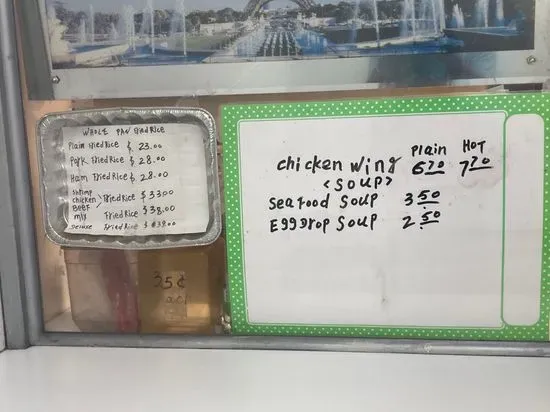 WHOLE PAN Fried RICE
Plain Fried Rice $ 23.00
Pork Fried Rice $ 28.00
Ham Fried Rice $ 28.00
Shrimp
chicken > Fried Rice $ 33.00
BEEF
mix Fried Rice $ 38.00
Deluxe Fried Rice $
35¢
Plain HOT
chicken wing 6 70 7 70
<SOUP>
Seafood Soup 3.50
EGGDrop Soup 2.50